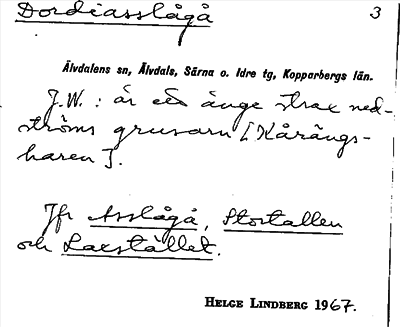 Dordiasslågå 3
Älvdalens sn, Älvdals, Särna o. Idre tg, Kopparbergs län.
J.W.: är ett änge strax ned-
ströms grusarn [Kårängs-
haren].
Jfr Asslågå, Stortallen
och Laxstället.
HELGE LINDBERG 1967.